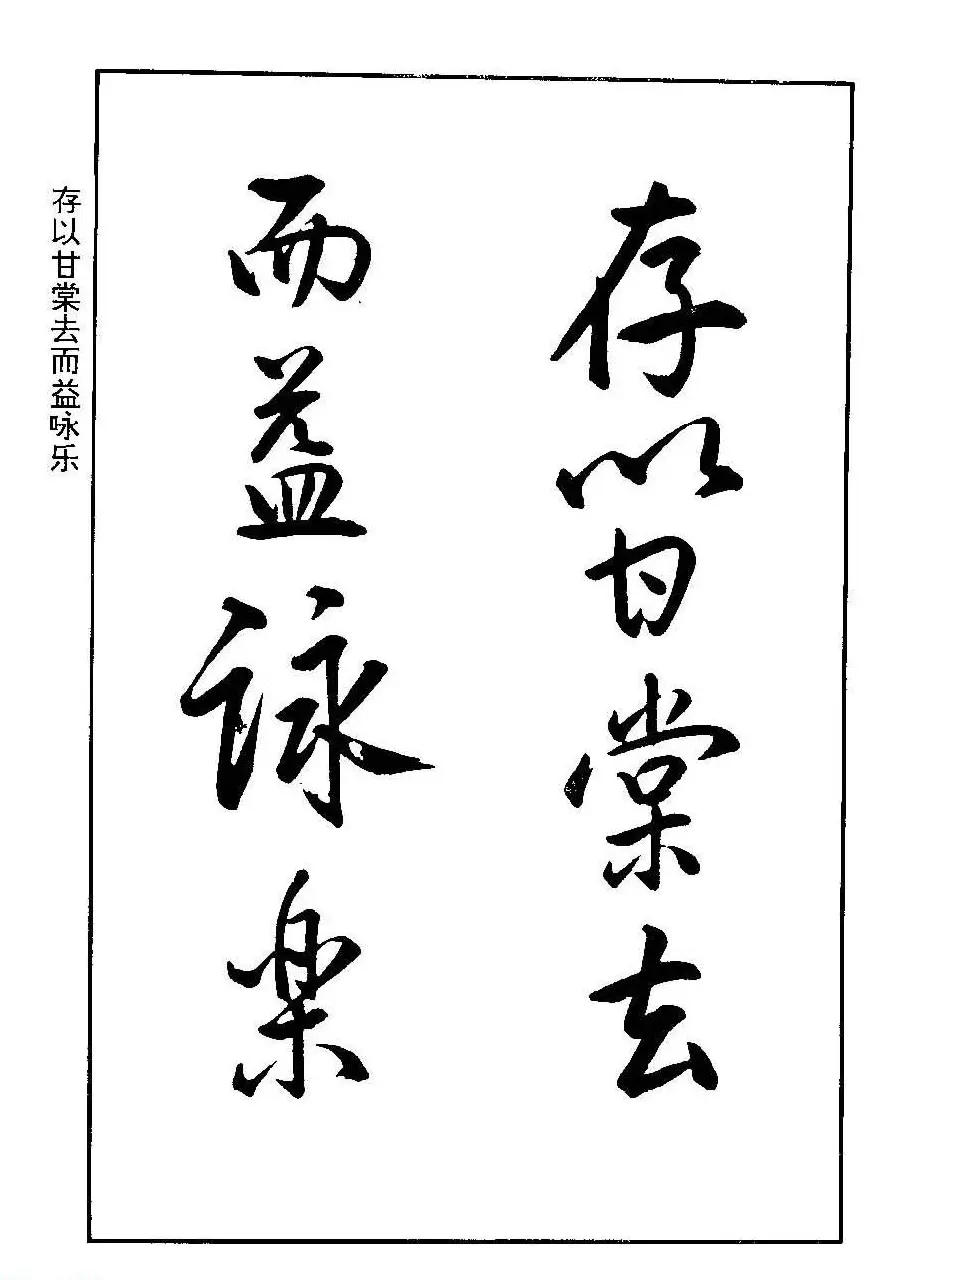 存以甘棠去
而益詠楽
存以甘棠去而益咏乐